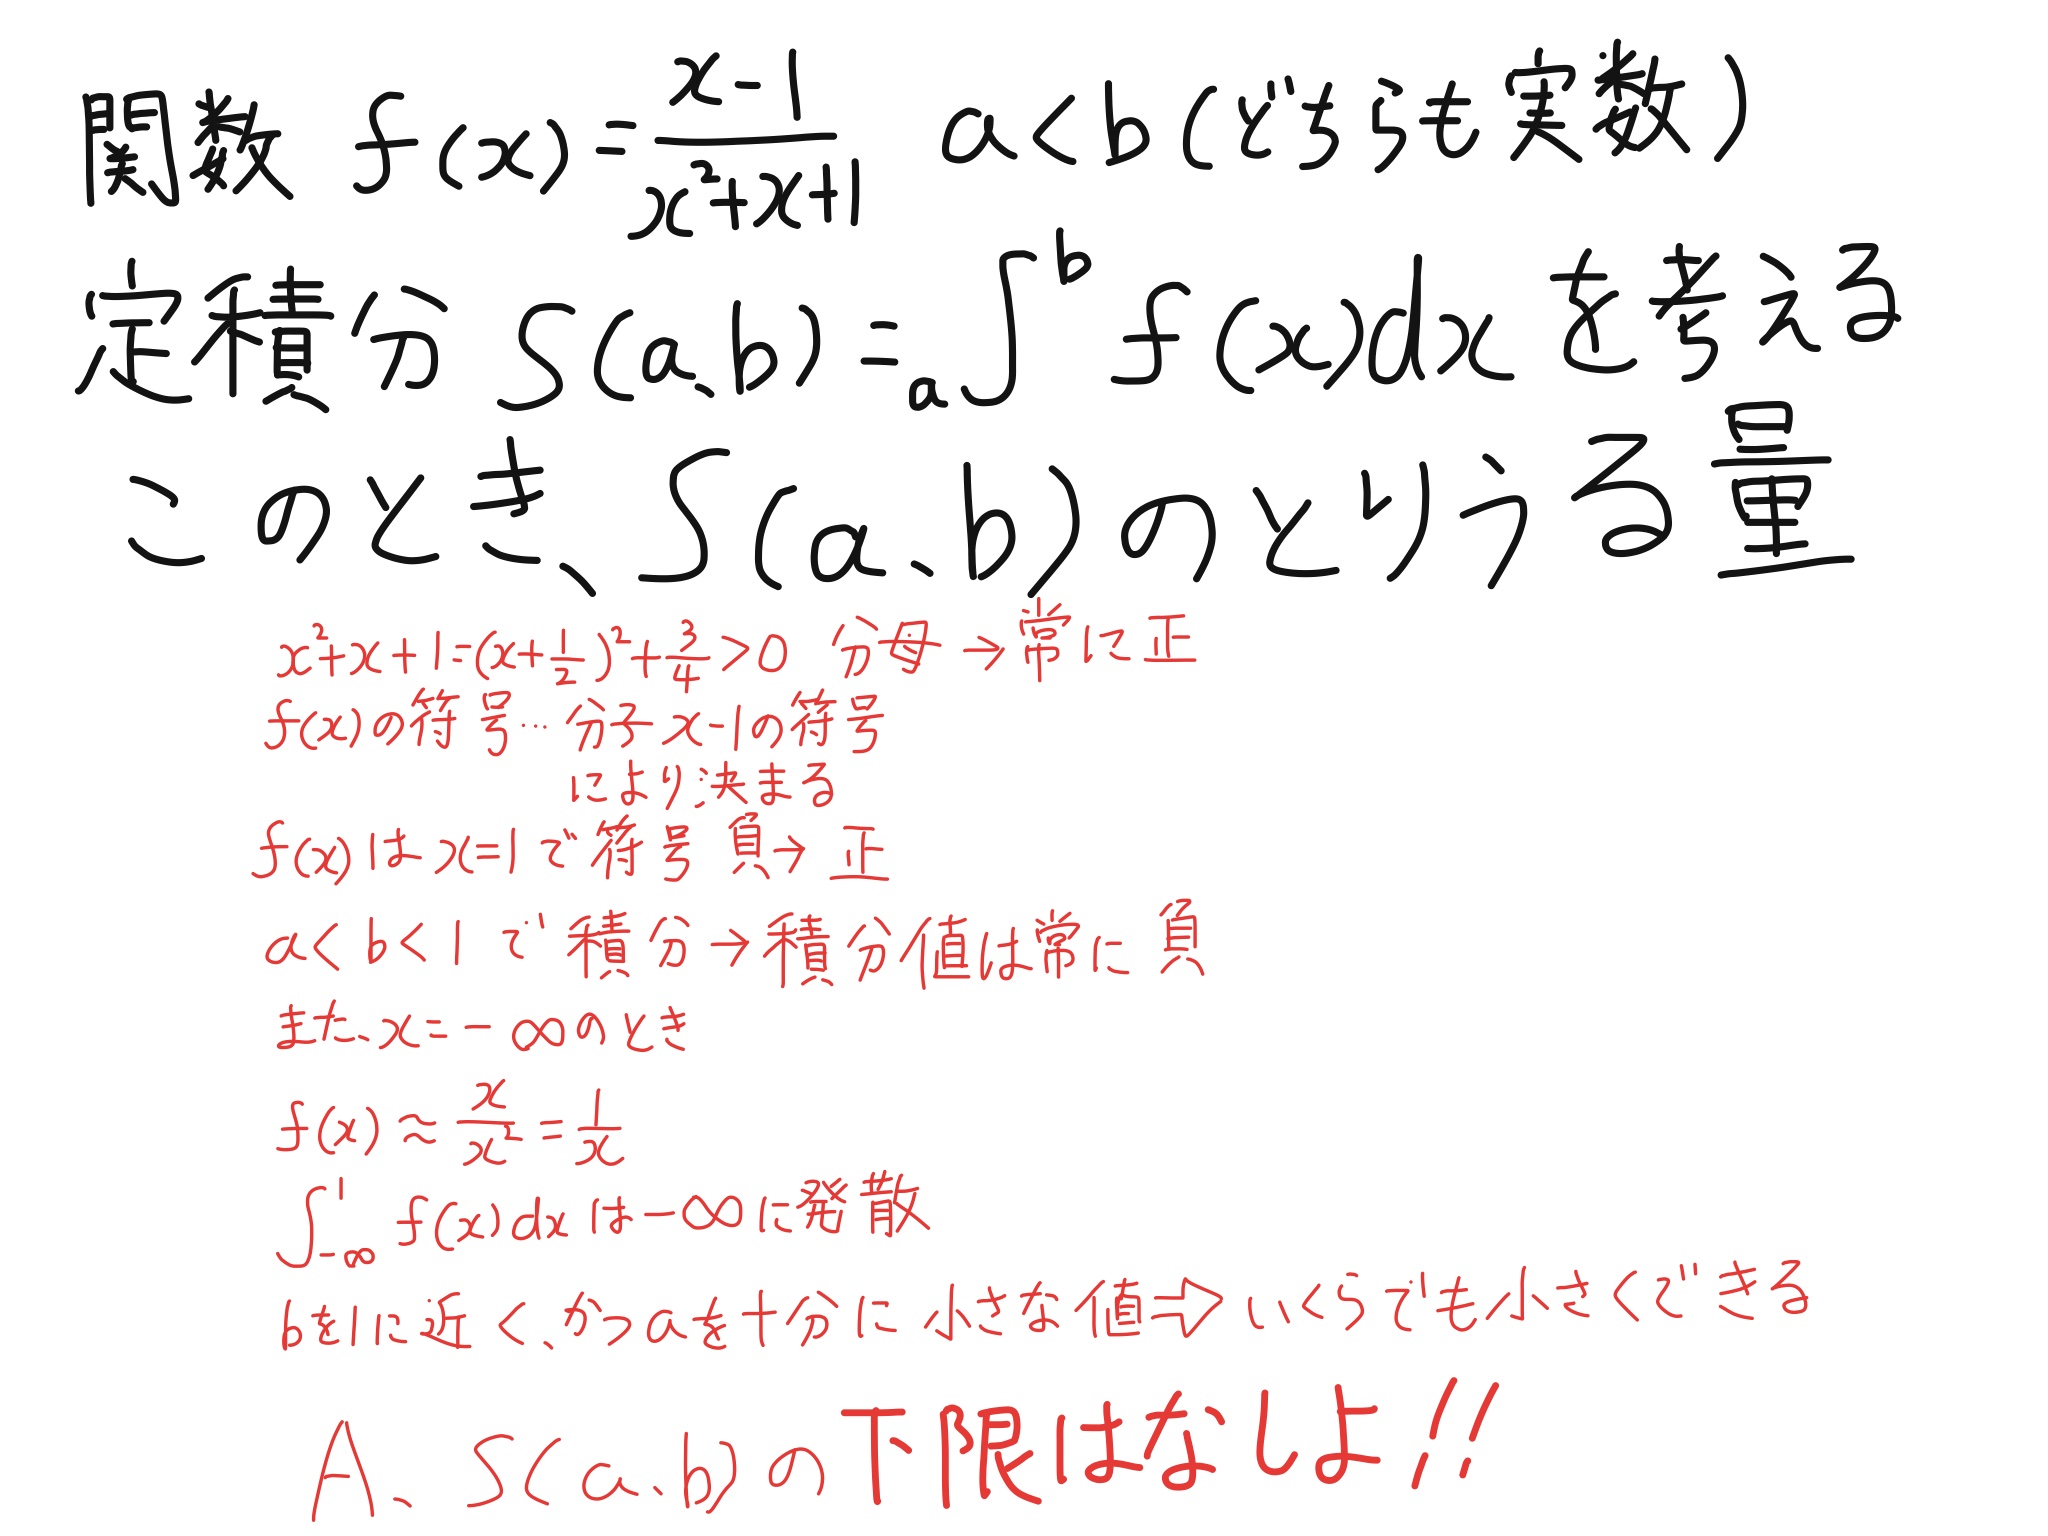 関数 f(x) = (x-1)/(x²+x+1) a<b(どちらも実数)
定積分 S(a、b) = ₐ∫ᵇ f(x)dx を考える
このとき、S(a、b)のとりうる量
x²+x+1=(x+1/2)²+3/4>0 分母→常に正
f(x)の符号…分子x-1の符号
により決まる
f(x)はx=1で符号 負→正
a<b<1で積分→積分値は常に負
また、x=-∞のとき
f(x)≈x/x²=1/x
∫₋∞¹ f(x)dxは-∞に発散
bを1に近く、かつaを十分に小さな値⇒いくらでも小さくできる
A、S(a、b)の下限はなしよ!!